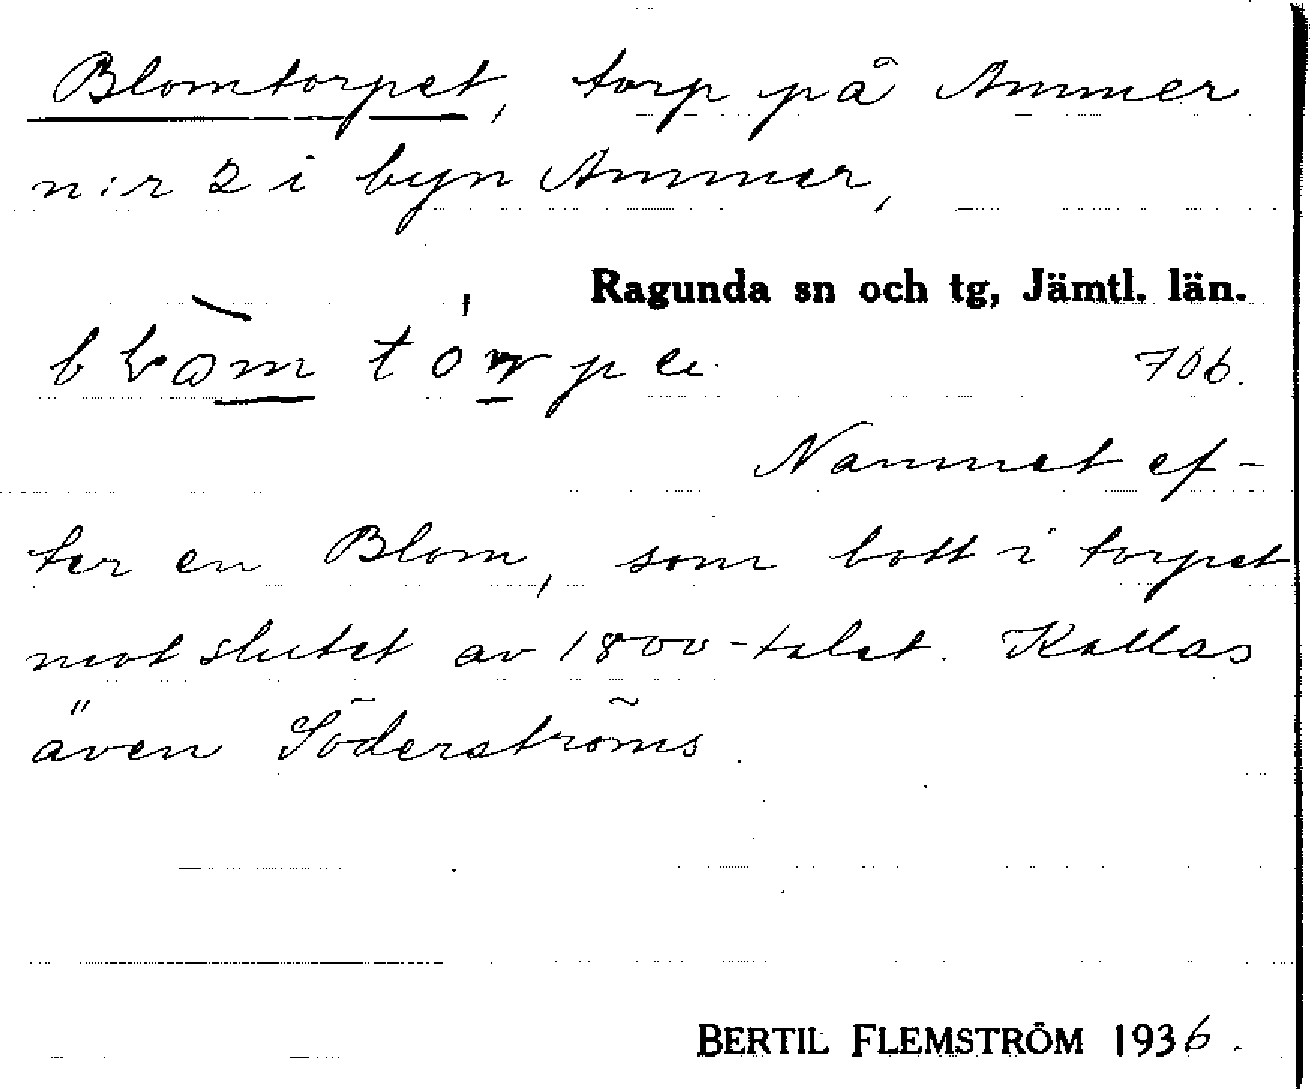 Blomtorpet, torp på Ammer
n:r 2 i byn Ammer,
Ragunda sn och tg, Jämtl. län.
706.
Namnet ef-
ter en Blom, som bott i torpet
mot slutet av 1800-talet. Kallas
även Söderströms.
BERTIL FLEMSTRÖM 1936.